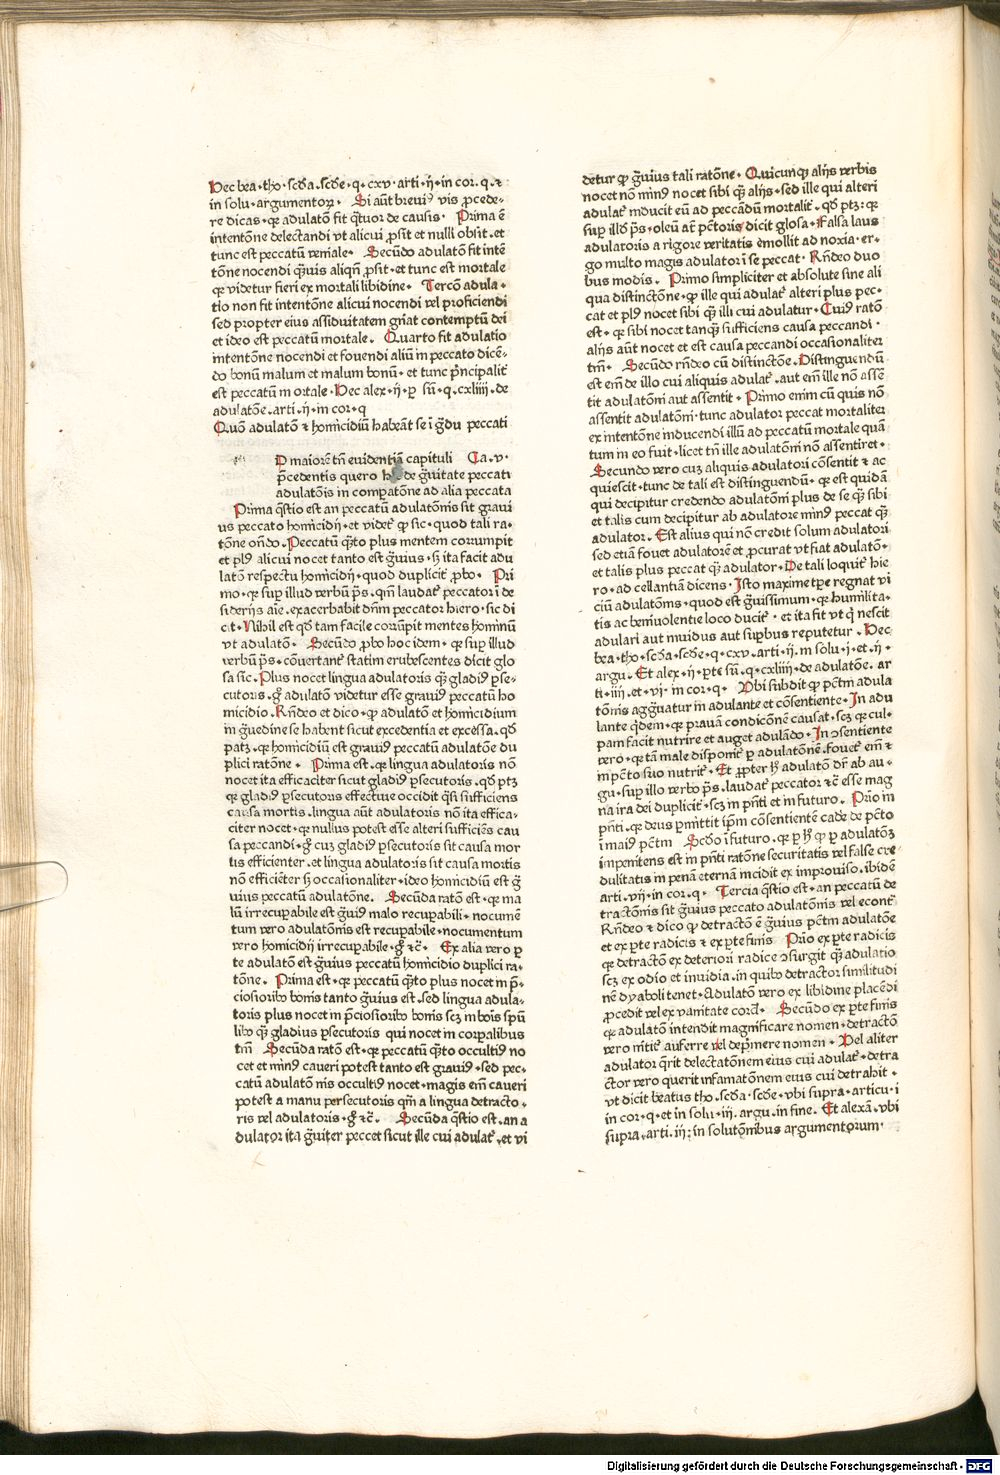 Hec bea·tho·scđa.scđe·q·cxv·arti·ij·in cor.q.⁊
in solu·argumentorꝝ· Si aūt breuiꝰ vis ꝓcede-
re dicas·qꝛ adulatō fit qͣtuor de causis· Prima ē
intentōne delectandi vt alicui ꝓsit et nulli obsit·et
tunc est peccatū veniale· Secūdo adulatō fit intē
tōne nocendi qͣuis aliqn̄ ꝓsit·et tunc est mortale
qꝛ videtur fieri ex mortali libidine· Tercō adula-
tio non fit intentōne alicui nocendi vel proficiendi
sed propter eius assiduitatem gn̄at contemptū dei
et ideo est peccatū mortale. Quarto fit adulatio
intentōne nocendi et fouendi aliū in peccato dicē-
do bonū malum et malum bonū·et tunc pͥncipalit̄
est peccatū mortale·Hec alex·ij·ꝑ sū·q·cxliiij·de
adulatōe·arti·ij·in cor·q
Quō adulatō ⁊ homicidiū habeāt se ī gͣdu peccati
D maiorē tn̄ euidentiā capituli Ca·v·
p̄cedentis quero de gͣuitate peccati
adulatōis in compatōne ad alia peccata
Prima q̄stio est an peccatū adulatōnis sit graui
us peccato homicidij·et videt̄ ꝙ sic·quod tali ra-
tōne on̄do·Peccatū q̄to plus mentem corrumpit
et plꝰ alicui nocet tanto est gͣuius·sꝫ ita facit adu
latō respectu homicidij·quod duplicit̄ ꝓbo· Pri
mo·qꝛ suꝑ illud verbū p̄s·qm̄ laudat̄ peccator ī de
siderijs aīe·exacerbabit dn̄m peccator hiero·sic di
cit·Nihil est qđ tam facile corrūpit mentes hominū
vt adulatō· Secūdo ꝓbo hoc idem·qꝛ suꝑ illud
verbū p̄s·cōuertant̄ statim erubescentes dicit glo
sa sic·Plus nocet lingua adulatoris qͣꝫ gladiꝰ ꝑse-
cutoris·gͦ adulatō videtur esse grauiꝰ peccatū ho
micidio·Rn̄deo et dico·ꝙ adulatō et homicidium
in gͣuedine se habent sicut excedentia et excessa·qđ
patꝫ·qꝛ homicidiū est grauiꝰ peccatū adulatōe du
plici ratōne· Prima est·qꝛ lingua adulatoris nō
nocet ita efficaciter sicut gladiꝰ ꝑsecutoris·qđ ptꝫ
qꝛ gladiꝰ ꝑsecutoris effectiue occidit q̄si sufficiens
causa mortis·lingua aūt adulatoris nō ita effica-
citer nocet·qꝛ nullius potest esse alteri sufficiēs cau
sa peccandi·gͦ cuꝫ gladiꝰ ꝑsecutoris sit causa mor
tis efficienter·et lingua adulatoris sit causa mortis
nō efficiēter sꝫ occasionaliter·ideo homicidiū est gͣ
uius peccatū adulatōne. Secūda ratō est·qꝛ ma
lū irrecuꝑabile est gͣuiꝰ malo recuꝑabili·nocumē
tum vero adulatōnis est recuꝑabile·nocumentum
vero homicidij irrecuꝑabile·gͦ ⁊c̄· Ex alia vero ꝑ
te adulatō est gͣuius peccatū homicidio duplici ra-
tōne. Prima est·qꝛ peccatū q̄to plus nocet in p̄-
ciosioribꝰ bonis tanto gͣuius est·sed lingua adula-
toris plus nocet in p̄ciosioribꝰ bonis scꝫ in bōis spūa
libꝰ qͣꝫ gladius ꝑsecutoris qui nocet in corꝑalibus
tm̄ Secūda ratō est·qꝛ peccatū q̄to occultiꝰ no
cet et minꝰ caueri potest tanto est grauiꝰ·sed pec-
catū adulatōnis occultiꝰ nocet·magis em̄ caueri
potest a manu persecutoris qm̄ a lingua detracto·
ris vel adulatoris·gͦ ⁊c̄. Secūda q̄stio est·an a
dulator ita gͣuiter peccet sicut ille cui adulat̄·et vi
detur ꝙ gͣuius tali ratōne· Quicunqꝫ alijs verbis
nocet nō minꝰ nocet sibi qͣꝫ alijs·sed ille qui alteri
adulat̄ inducit eū ad peccādū mortalit̄·qđ ptꝫ·qꝛ
suꝑ illđ p̄s·oleū aūt pc̄toris dicit glosa·Falsa laus
adulatoris a rigore veritatis emollit ad noxia·er-
go multo magis adulator ī se peccat·Rn̄deo duo
bus modis. Primo simpliciter et absolute sine ali
qua distinctōne·ꝙ ille qui adulat̄ alteri plus pec-
cat et plꝰ nocet sibi qͣꝫ illi cui adulatur·Cuiꝰ ratō
est·qꝛ sibi nocet tanqͣꝫ sufficiens causa peccandi·
alijs aūt nocet et est causa peccandi occasionaliter
tm̄· Secūdo rn̄deo cū distinctōe·Distinguendū
est em̄ de illo cui aliquis adulat̄·aut em̄ ille nō assē
tit adulatōni aut assentit·Primo enim cū quis nō
assentit adulatōni·tunc adulator peccat mortaliter
ex intentōne inducendi illū ad peccatū mortale quā
tum in eo fuit·licet tn̄ ille adulatōni nō assentiret·
Secundo vero cuꝫ aliquis adulatori cōsentit ⁊ ac
quiescit·tunc de tali est distinguendū·qꝛ est quidā
qui decipitur credendo adulatōni plus de se qͣꝫ sibi
et talis cum decipitur ab adulatore minꝰ peccat qͣꝫ
adulator· Est alius qui nō credit solum adulatori
sed etiā fouet adulatorē et ꝓcurat vt fiat adulatō·
et talis plus peccat qͣꝫ adulator·De tali loquit̄ hie
ro·ad cellantiā dicens·Isto maxime tꝑe regnat vi
ciū adulatōnis·quod est gͣuissimum·qꝛ humilita-
tis ac beniuolentie loco ducit̄·et ita fit vt qͥ nescit
adulari aut inuidus aut suꝑbus reputetur·Hec
bea·tho·scđa·scđe·q·cxv·arti·ij·in solu·i·et·ij·
argu·Et alex·ij·ꝑte sū·q·cxliiij·de adulatōe·ar
ti·iij·et·vj·in cor·q· Vbi subdit ꝙ pc̄tm adula
tōnis aggͣuatur in adulante et cōsentiente·In adu
lante qͥdem·qꝛ prauā condicōnē causat·scꝫ qꝛ cul-
pam facit nutrire et auget adulādo·In ꝯsentiente
vero·qꝛ tā male disponit̄ ꝑ adulatōnē·fouet̄ em̄ ⁊
in pc̄to suo nutrit̄·Et ꝓpter hͦ adulatō dr̄ ab au-
gu·suꝑ illo verbo p̄s·laudat̄ peccator ⁊c̄ esse mag
na ira dei duplicit̄·scꝫ in pn̄ti et in futuro. Prīo in
pn̄ti·qꝛ deus ꝑmittit ip̄m cōsentientē cade de pc̄to
ī maiꝰ pc̄tm Scđo ī futuro·qꝛ ꝑ hͦ ꝙ ꝑ adulatōꝫ
impenitens est in pn̄ti ratōne securitatis vel false cre-
dulitatis in penā eternā incidit ex improuiso·ibidē
arti·vij·in cor·q· Tercia q̄stio est·an peccatū de
tractōnis sit gͣuius peccato adulatōnis vel econt̄
Rn̄deo ⁊ dico ꝙ detractō ē gͣuius pc̄tm adulatōe
et ex ꝑte radicis ⁊ ex ꝑte finis Prīo ex ꝑte radicis
qꝛ detractō ex deteriori radice ꝯsurgit qͣꝫ adulatio
scꝫ ex odio et inuidia·in quibꝰ detractor similitudi
nē dyaboli tenet·Adulatō vero ex libidine placēdi
ꝓcedit vel ex vanitate cordꝭ· Secūdo ex ꝑte finis
qꝛ adulatō intendit magnificare nomen·detractō
vero nitit̄ auferre vel dep̄mere nomen·Vel aliter
adulator q̄rit delectatōnem eius cui adulat̄·detra
ctor vero querit infamatōnem eius cui detrahit·
vt dicit beatus tho·scđa·scđe·vbi supra·articu·i
in cor·q·et in solu·iij·argu·in fine. Et alexā·vbi
supra·arti·iij·in solutōnibus argumentorum·
Digitalisierung gefördert durch die Deutsche Forschungsgemeinschaft - DFG